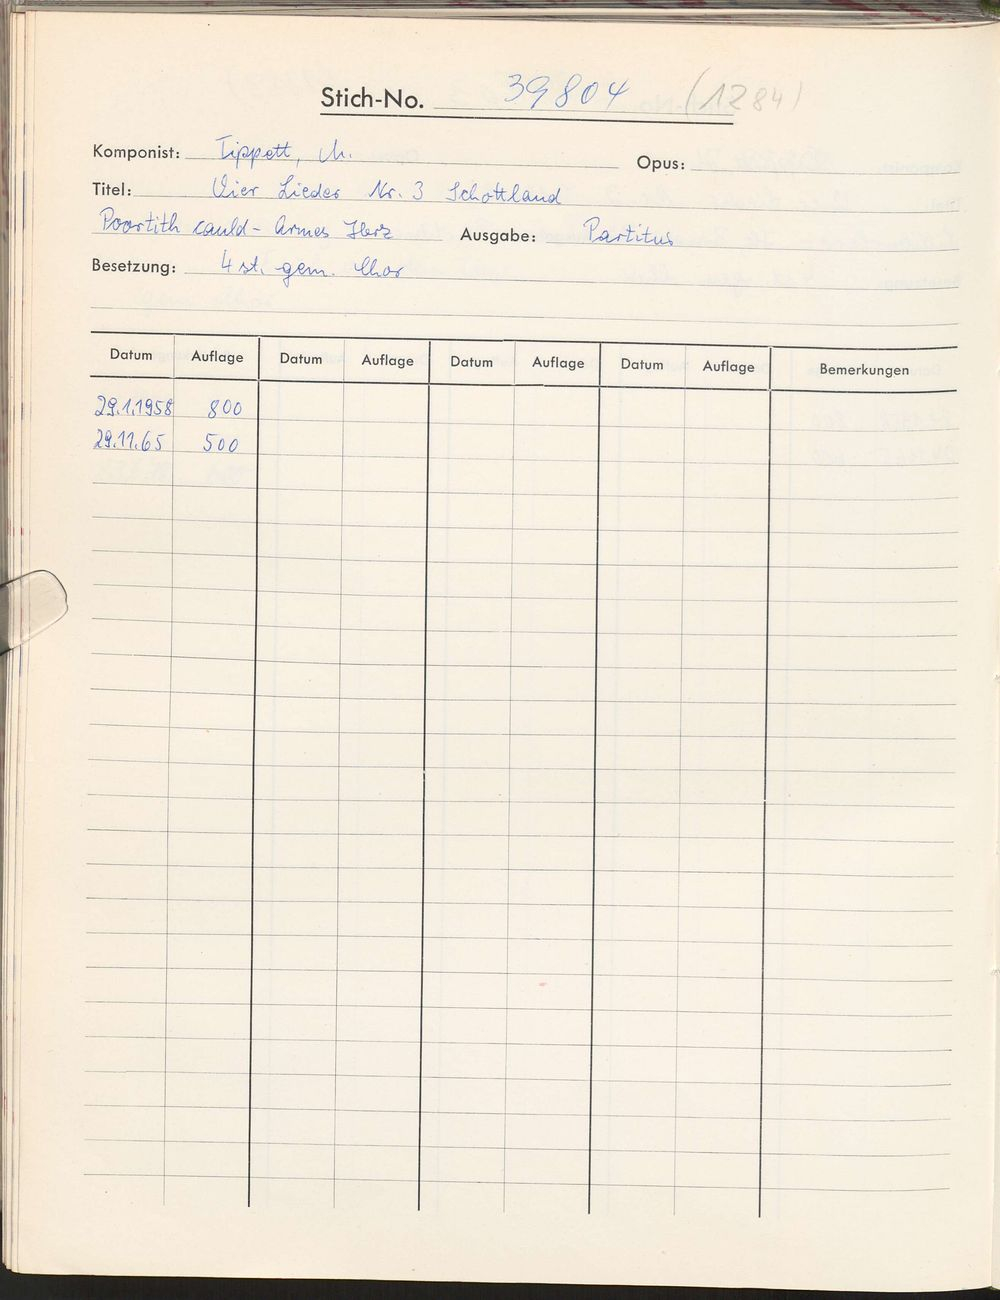 Stich-No. 39804 (1284)
Komponist: Tippett, M. Opus:
Titel: Vier Lieder Nr. 3 Schottland
Poortith cauld - Armes Herz Ausgabe: Partitur
Besetzung: 4 st. gem. Chor
Datum Auflage Datum Auflage Datum Auflage Datum Auflage Bemerkungen
29.1.1958 800
29.11.65 500